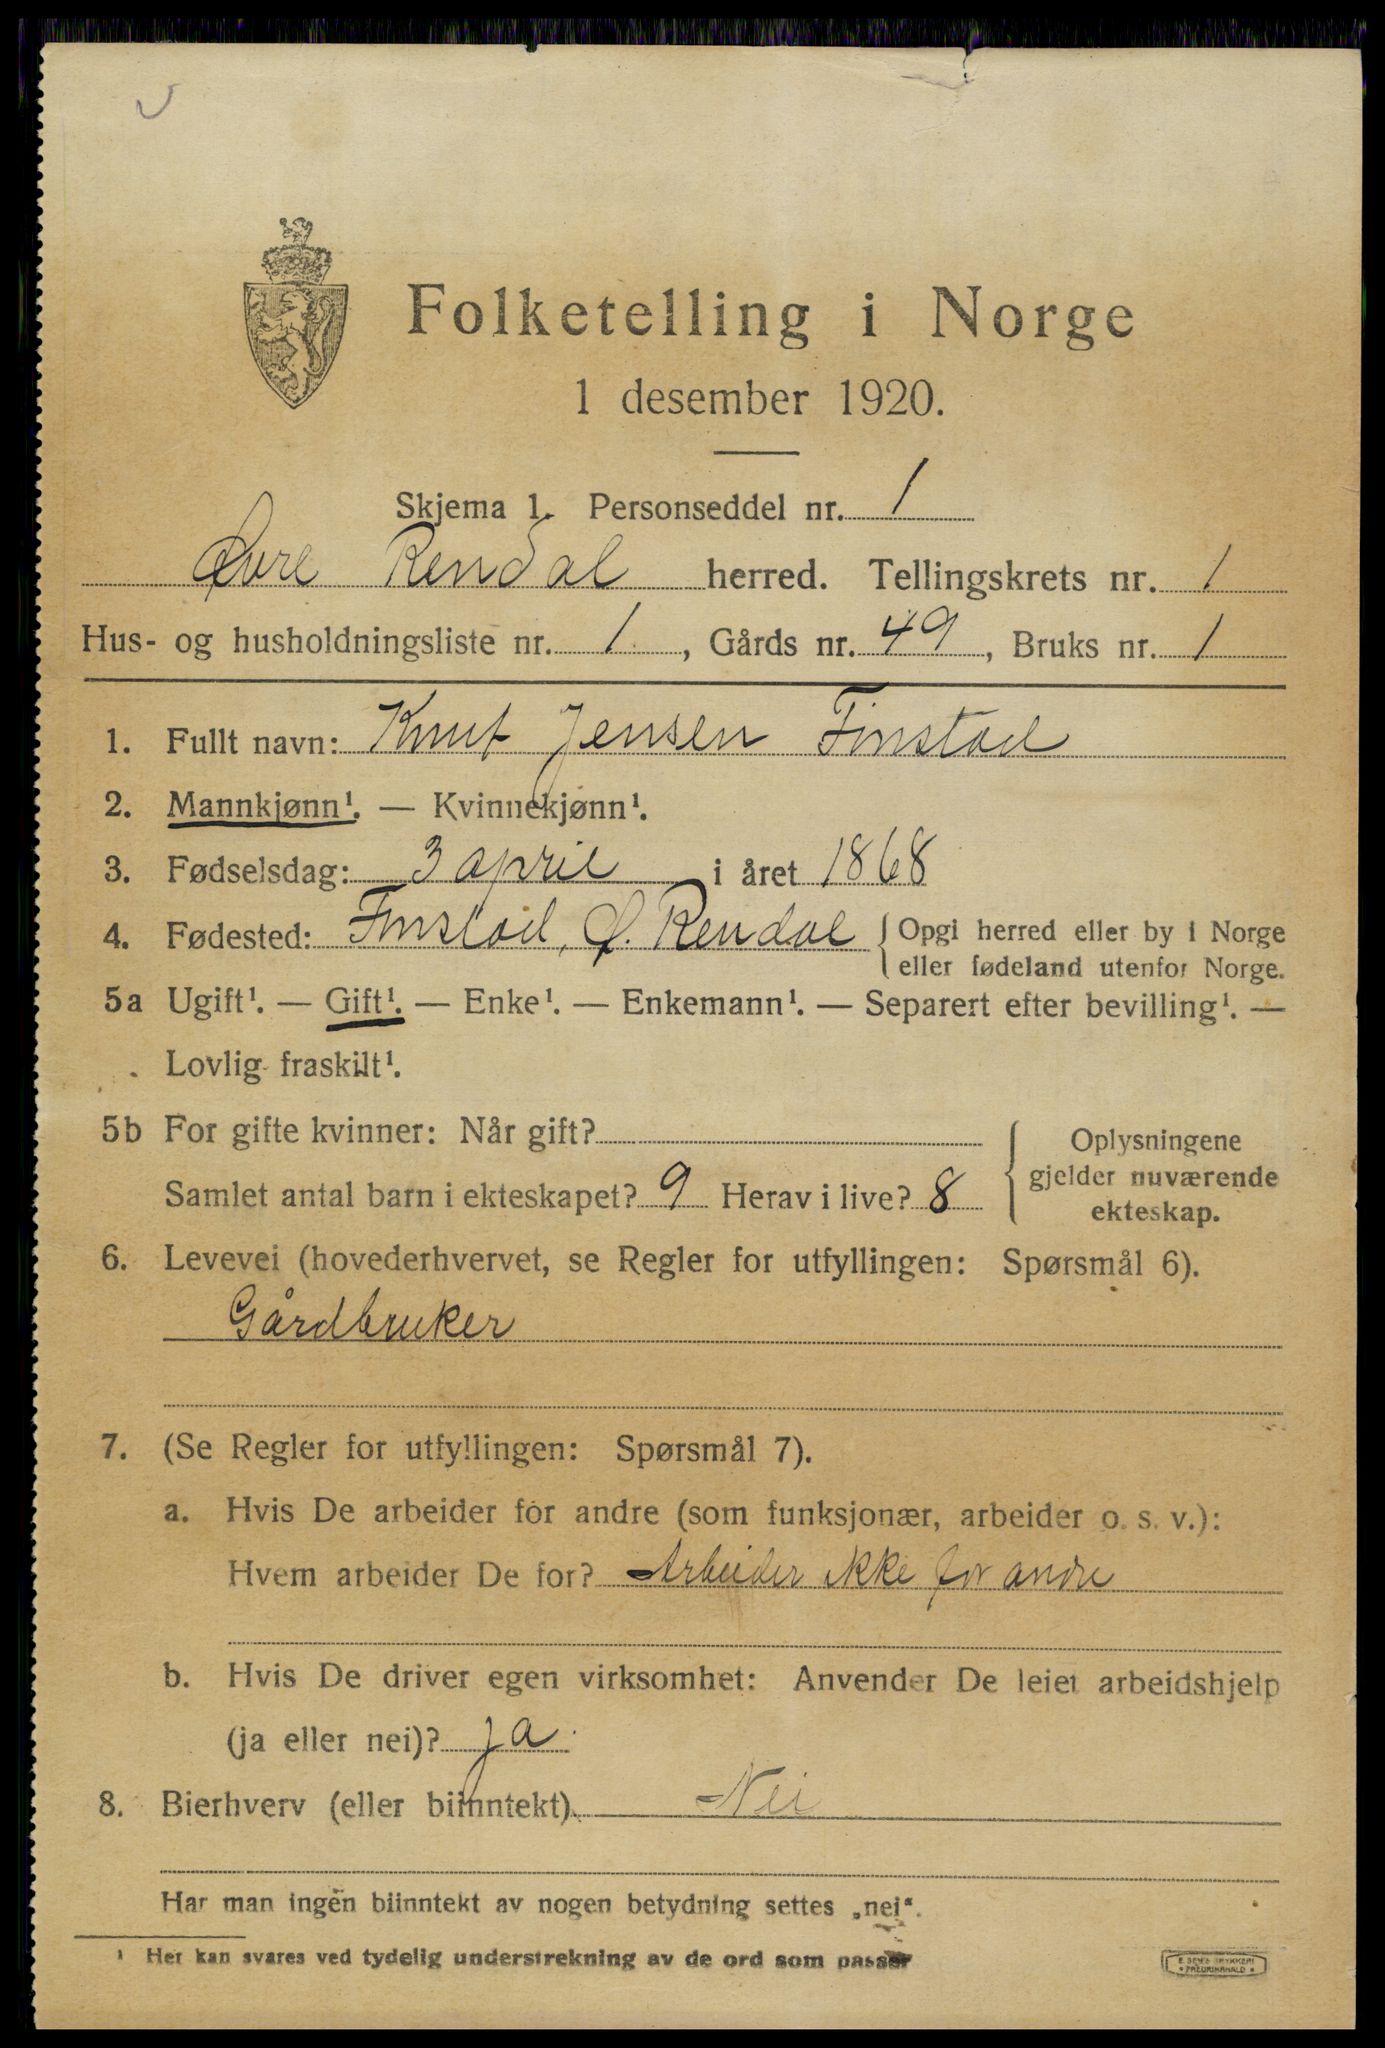 Folketelling i Norge
1 desember 1920.
Skjema 1. Personseddel nr. 1
Øvre Rendal herred. Tellingskrets nr. 1
Hus- og husholdningsliste nr. 1, Gårds nr. 49, Bruks nr. 1
1. Fullt navn: Knut Jensen Finstad
2. Mannkjønn¹. — Kvinnekjønn¹.
3. Fødselsdag: 3 april i året 1868
4. Fødested: Finstad, Ø. Rendal { Opgi herred eller by i Norge
eller fødeland utenfor Norge.
5a Ugift¹. — Gift¹. — Enke¹. — Enkemann¹. — Separert efter bevilling¹. —
Lovlig fraskilt¹.
5b For gifte kvinner: Når gift?
Samlet antal barn i ekteskapet? 9 Herav i live? 8
{ Oplysningene
gjelder nuværende
ekteskap.
6. Levevei (hovederhvervet, se Regler for utfyllingen: Spørsmål 6).
Gårdbruker
7. (Se Regler for utfyllingen: Spørsmål 7).
a. Hvis De arbeider for andre (som funksjonær, arbeider o. s. v.):
Hvem arbeider De for? Arbeider ikke for andre
b. Hvis De driver egen virksomhet: Anvender De leiet arbeidshjelp
(ja eller nei)? ja.
8. Bierhverv (eller biinntekt) Nei
Har man ingen biinntekt av nogen betydning settes „nei“.
¹ Her kan svares ved tydelig understrekning av de ord som passer